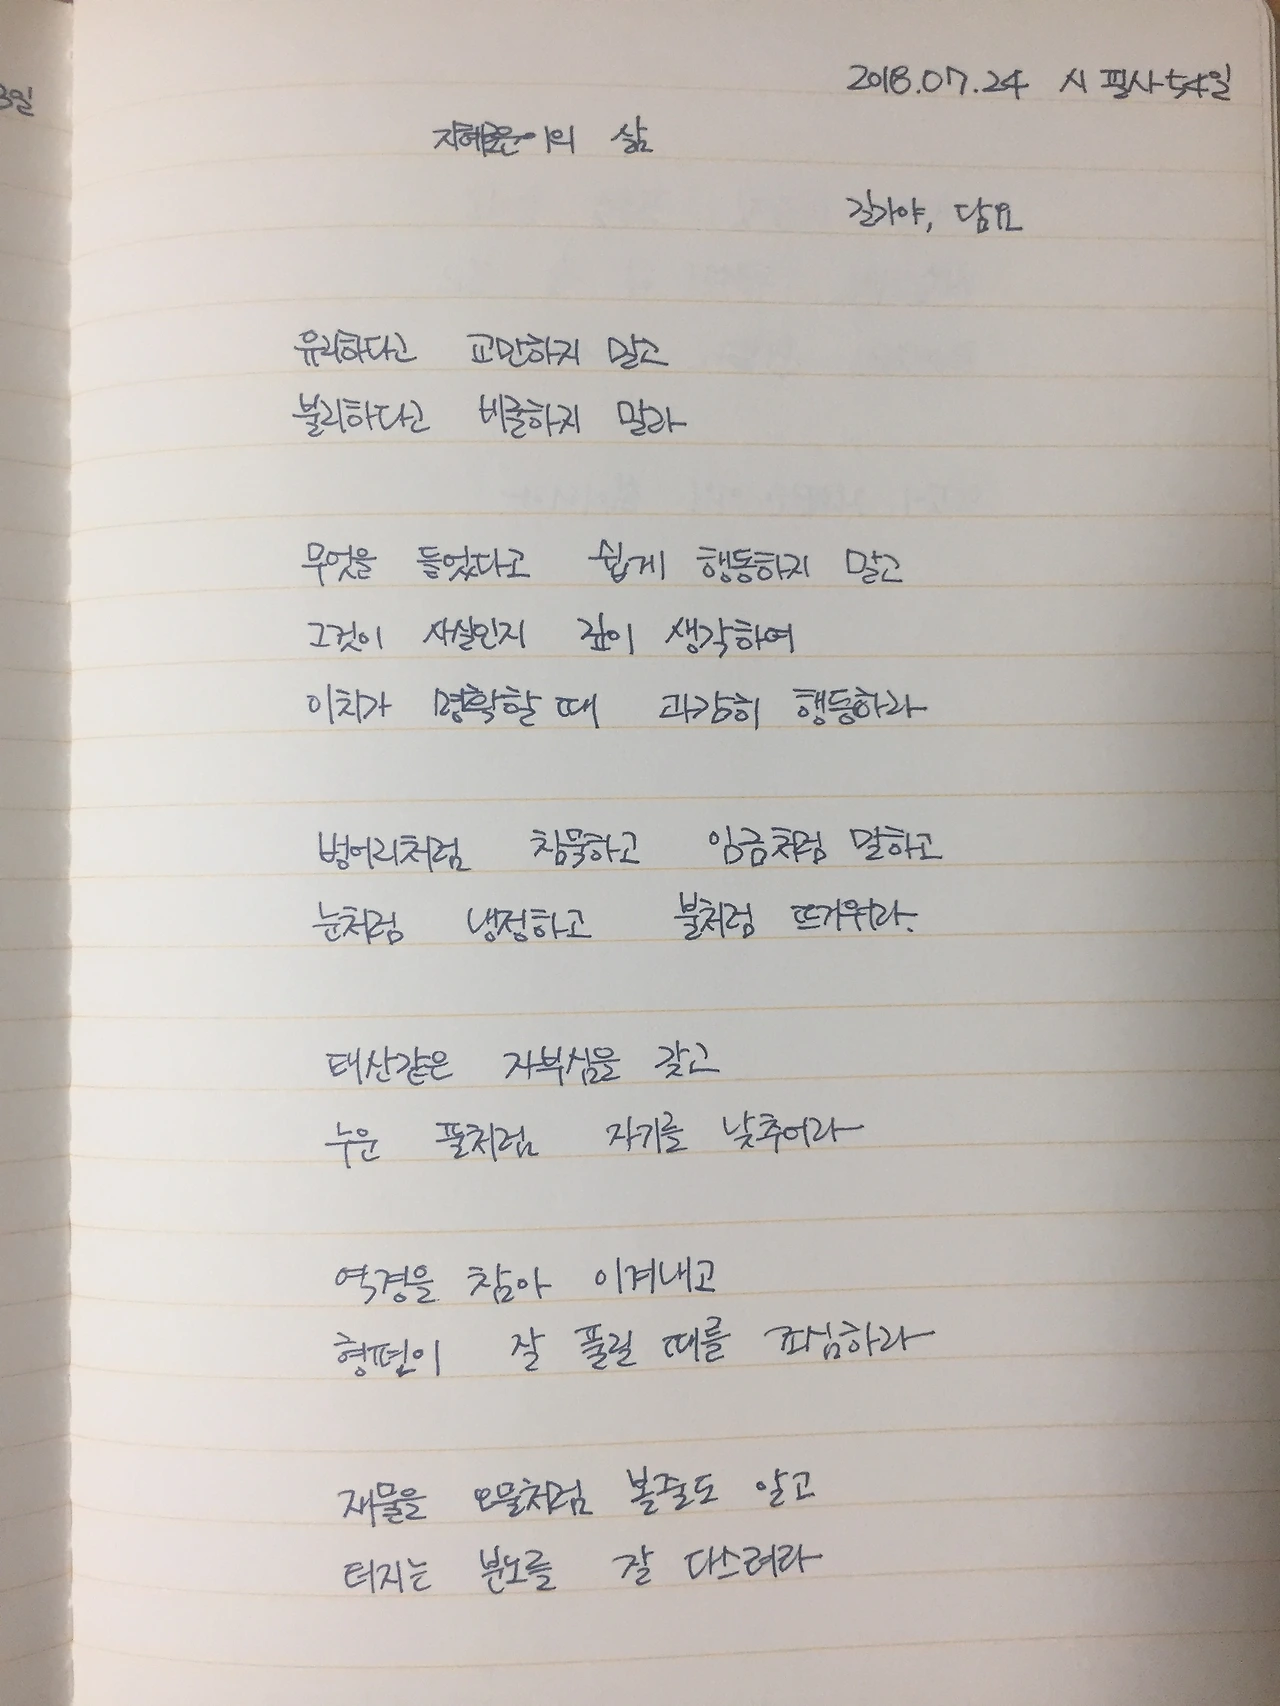 3일
2018.07.24 시 필사 54일
지혜로운 이의 삶
길가야, 담요
유리하다고 교만하지 말고
불리하다고 비굴하지 말라
무엇을 들었다고 쉽게 행동하지 말고
그것이 사실인지 깊이 생각하여
이치가 명확할 때 과감히 행동하라
벙어리처럼 침묵하고 임금처럼 말하고
눈처럼 냉정하고 불처럼 뜨거워라.
태산같은 자부심을 갖고
누운 풀처럼 자기를 낮추어라
역경을 참아 이겨내고
형편이 잘 풀릴 때를 조심하라
재물을 오물처럼 볼줄도 알고
터지는 분노를 잘 다스려라